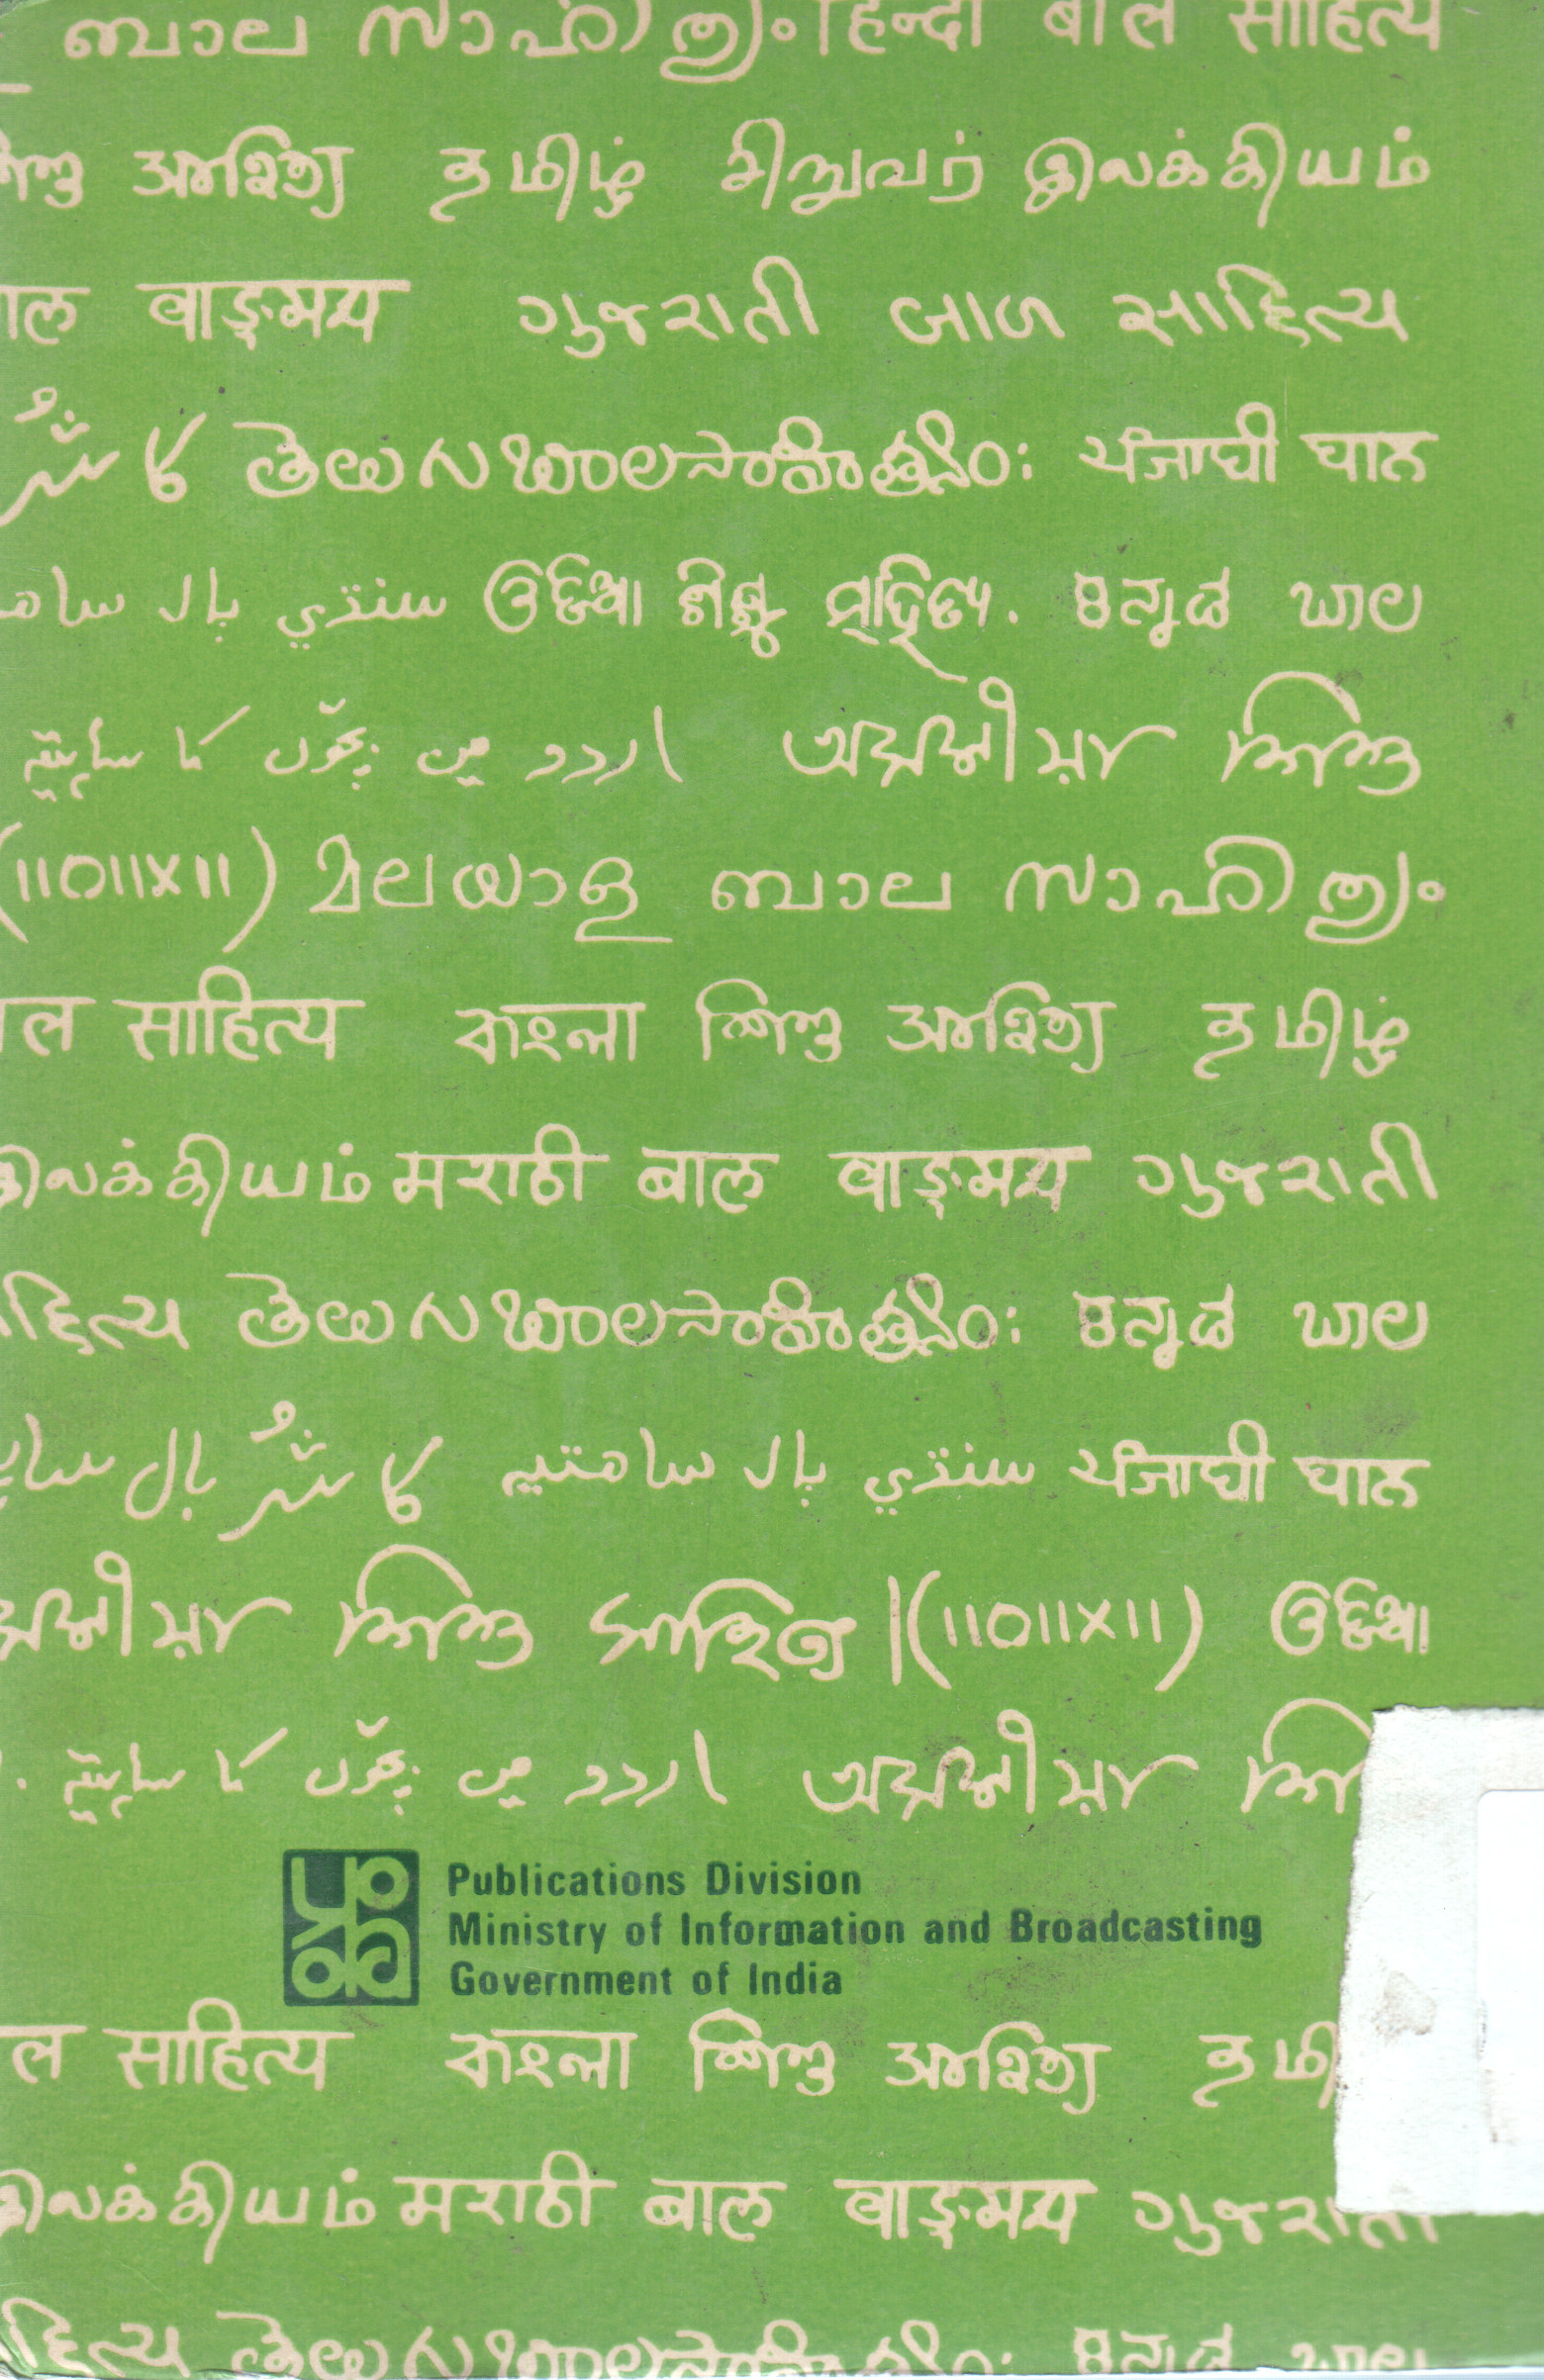 ബാല സാഹിത്യം हिन्दी बाल साहित्य
সাহিত্য தமிழ் சிறுவர் இலக்கியம்
वाङ्मय ગુજરાતી બાળ સાહિત્ય
کاشُر తెలుగు బాలసాహిత్యం: ਪੰਜਾਬੀ ਬਾਲ
سنڌي ٻال ଓଡିଆ ଶିଶୁ ସାହିତ୍ୟ. ಕನ್ನಡ ಬಾಲ
اردو میں بچوں کا ساہتیہ অসমীয়া শিশু
(॥০॥x॥) മലയാള ബാല സാഹിത്യം
ल साहित्य বাংলা শিশু সাহিত্য தமிழ்
இலக்கியம் मराठी बाल वाङ्मय ગુજરાતી
હિત્ય తెలుగు బాలసాహిత్యం: ಕನ್ನಡ ಬಾಲ
کاشُر بال سنڌي ٻال ساهتيه ਪੰਜਾਬੀ ਬਾਲ
শিশু সাহিত্য |(॥০॥x॥) ଓଡିଆ
اردو میں بچوں کا ساہتیہ অসমীয়া
Publications Division
Ministry of Information and Broadcasting
Government of India
ल साहित्य বাংলা শিশু সাহিত্য தமி
இலக்கியம் मराठी बाल वाङ्मय ગુજરાતી
હિત્ય తెలుగు బాలసాహిత్యం: ಕನ್ನಡ ಬಾಲ